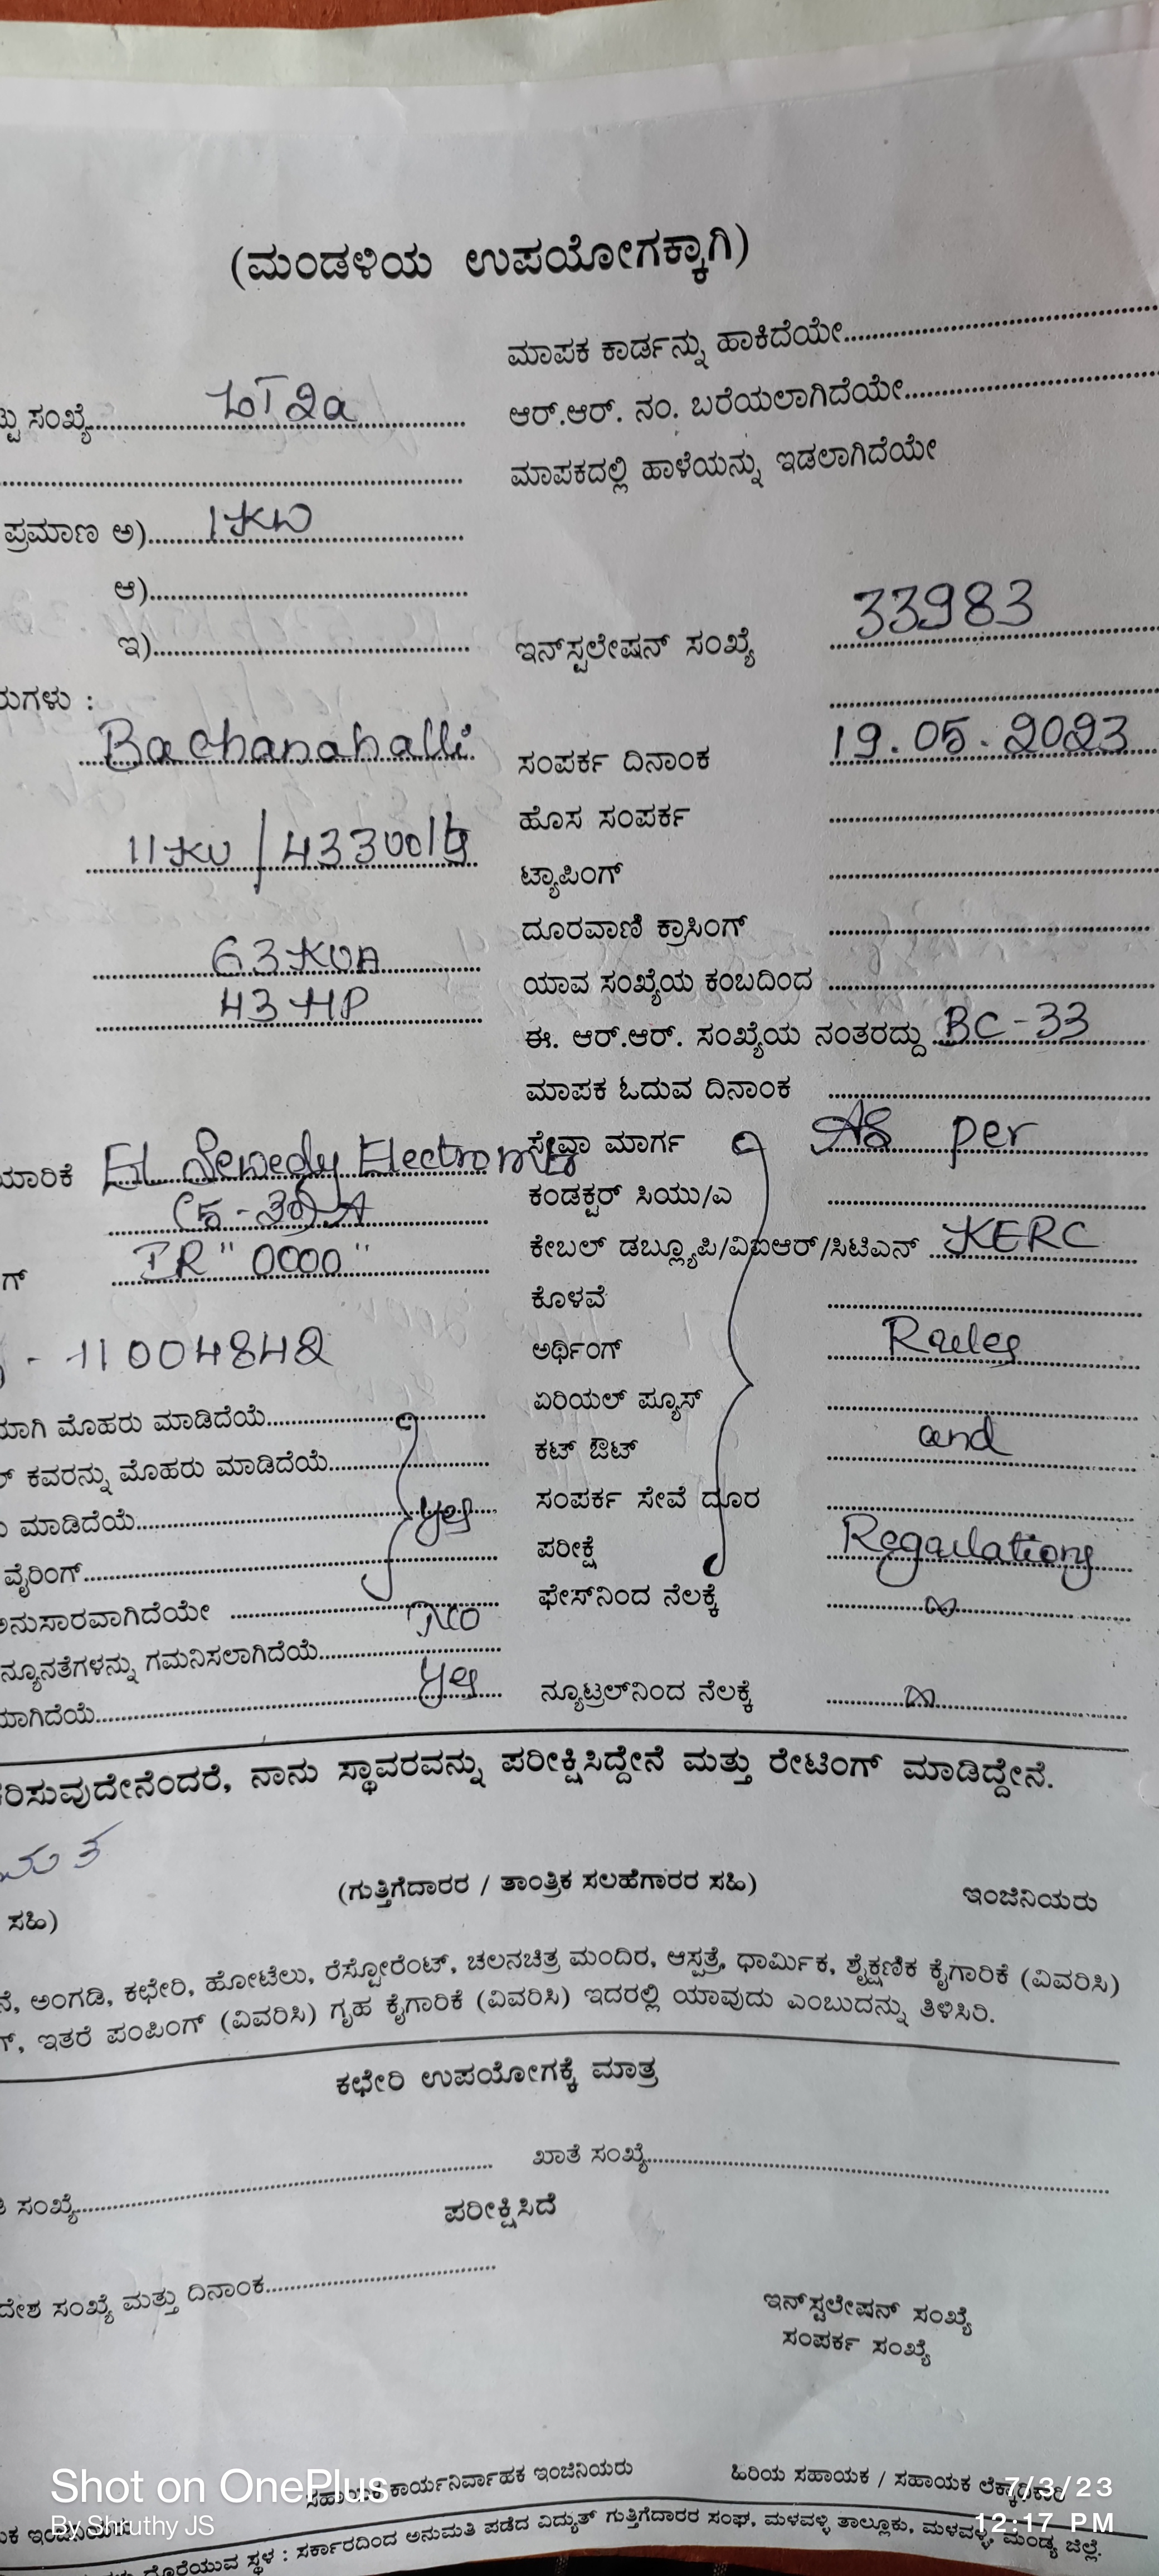 (ಮಂಡಳಿಯ ಉಪಯೋಗಕ್ಕಾಗಿ)
ಮಾಪಕ ಕಾರ್ಡನ್ನು ಹಾಕಿದೆಯೇ
ಟ್ಟು ಸಂಖ್ಯೆ LT 2a
ಆರ್.ಆರ್. ನಂ. ಬರೆಯಲಾಗಿದೆಯೇ
ಮಾಪಕದಲ್ಲಿ ಹಾಳೆಯನ್ನು ಇಡಲಾಗಿದೆಯೇ
ಪ್ರಮಾಣ ಅ) 1KW
ಆ)
ಇ)
ಇನ್‌ಸ್ಟಲೇಷನ್ ಸಂಖ್ಯೆ 33983
ಯಗಳು :
Bachanahalli
ಸಂಪರ್ಕ ದಿನಾಂಕ 19.05.2023
ಹೊಸ ಸಂಪರ್ಕ
11KV / 433Volts
ಟ್ಯಾಪಿಂಗ್
ದೂರವಾಣಿ ಕ್ರಾಸಿಂಗ್
63KVA
ಯಾವ ಸಂಖ್ಯೆಯ ಕಂಬದಿಂದ
43 HP
ಈ. ಆರ್.ಆರ್. ಸಂಖ್ಯೆಯ ನಂತರದ್ದು BC-33
ಮಾಪಕ ಓದುವ ದಿನಾಂಕ
ಯಾರಿಕೆ El Sewedy Electrometer
ಸೇವಾ ಮಾರ್ಗ As per
(5-30)A
ಕಂಡಕ್ಟರ್ ಸಿಯು/ಎ
ಗ್ IR "0000"
ಕೇಬಲ್ ಡಬ್ಲ್ಯೂಪಿ/ವಿಐಆರ್/ಸಿಟಿಎನ್ KERC
ಕೊಳವೆ
- 11004842
ಅರ್ಥಿಂಗ್ Rules
ಏರಿಯಲ್ ಪ್ಯೂಸ್
ಯಾಗಿ ಮೊಹರು ಮಾಡಿದೆಯೆ
ಕಟ್ ಔಟ್ and
ಕವರನ್ನು ಮೊಹರು ಮಾಡಿದೆಯೆ
ಸಂಪರ್ಕ ಸೇವೆ ದೂರ
ಮಾಡಿದೆಯೆ yes
ಪರೀಕ್ಷೆ Regulations
ವೈರಿಂಗ್
ಫೇಸ್‌ನಿಂದ ನೆಲಕ್ಕೆ ∞
ಅನುಸಾರವಾಗಿದೆಯೇ No
ನ್ಯೂನತೆಗಳನ್ನು ಗಮನಿಸಲಾಗಿದೆಯೆ
ಮಾಗಿದೆಯೆ yes
ನ್ಯೂಟ್ರಲ್‌ನಿಂದ ನೆಲಕ್ಕೆ ∞
ರಿಸುವುದೇನೆಂದರೆ, ನಾನು ಸ್ಥಾವರವನ್ನು ಪರೀಕ್ಷಿಸಿದ್ದೇನೆ ಮತ್ತು ರೇಟಿಂಗ್ ಮಾಡಿದ್ದೇನೆ.
ಸಹಿ)
(ಗುತ್ತಿಗೆದಾರರ / ತಾಂತ್ರಿಕ ಸಲಹೆಗಾರರ ಸಹಿ)
ಇಂಜಿನಿಯರು
ನೆ, ಅಂಗಡಿ, ಕಛೇರಿ, ಹೋಟೆಲು, ರೆಸ್ಟೋರೆಂಟ್, ಚಲನಚಿತ್ರ ಮಂದಿರ, ಆಸ್ಪತ್ರೆ, ಧಾರ್ಮಿಕ, ಶೈಕ್ಷಣಿಕ ಕೈಗಾರಿಕೆ (ವಿವರಿಸಿ)
ಗ್, ಇತರೆ ಪಂಪಿಂಗ್ (ವಿವರಿಸಿ) ಗೃಹ ಕೈಗಾರಿಕೆ (ವಿವರಿಸಿ) ಇದರಲ್ಲಿ ಯಾವುದು ಎಂಬುದನ್ನು ತಿಳಿಸಿರಿ.
ಕಛೇರಿ ಉಪಯೋಗಕ್ಕೆ ಮಾತ್ರ
ಸಂಖ್ಯೆ
ಖಾತೆ ಸಂಖ್ಯೆ
ಪರೀಕ್ಷಿಸಿದೆ
ದೇಶ ಸಂಖ್ಯೆ ಮತ್ತು ದಿನಾಂಕ
ಇನ್‌ಸ್ಟಲೇಷನ್ ಸಂಖ್ಯೆ
ಸಂಪರ್ಕ ಸಂಖ್ಯೆ
ಸಹಾಯಕ ಕಾರ್ಯನಿರ್ವಾಹಕ ಇಂಜಿನಿಯರು
ಹಿರಿಯ ಸಹಾಯಕ / ಸಹಾಯಕ ಲೆಕ್ಕಾಧಿಕಾರಿ
ದೊರೆಯುವ ಸ್ಥಳ : ಸರ್ಕಾರದಿಂದ ಅನುಮತಿ ಪಡೆದ ವಿದ್ಯುತ್ ಗುತ್ತಿಗೆದಾರರ ಸಂಘ, ಮಳವಳ್ಳಿ ತಾಲ್ಲೂಕು, ಮಳವಳ್ಳಿ, ಮಂಡ್ಯ ಜಿಲ್ಲೆ.
Shot on OnePlus
By Shruthy JS
7/3/23
12:17 PM